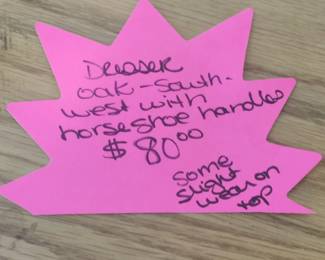 Dresser
oak - South-
west with
horseshoe handles
$ 80.00
Some
slight
wear on
top